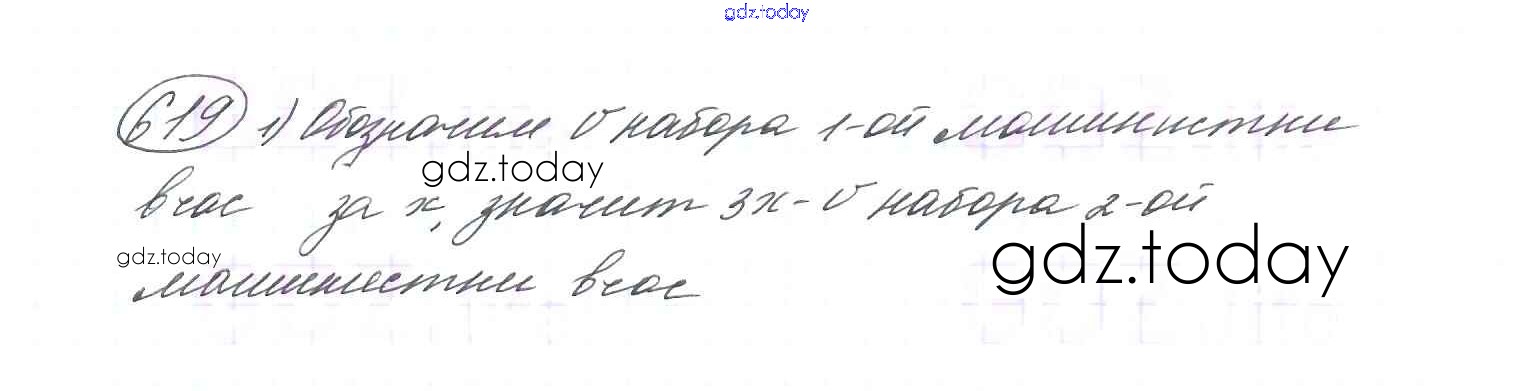 gdz.today
619 1) Обозначим V набора 1-ой машинистки
gdz.today
в час за x, значит 3x - V набора 2-ой
gdz.today
gdz.today
машинистки в час